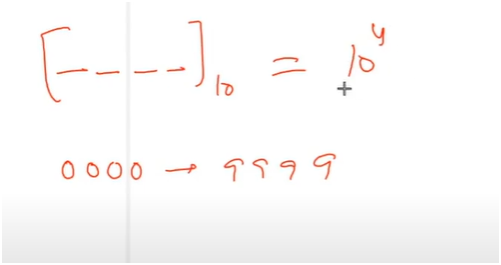 [_ _ _ _]₁₀ = 10⁴
0000 → 9999